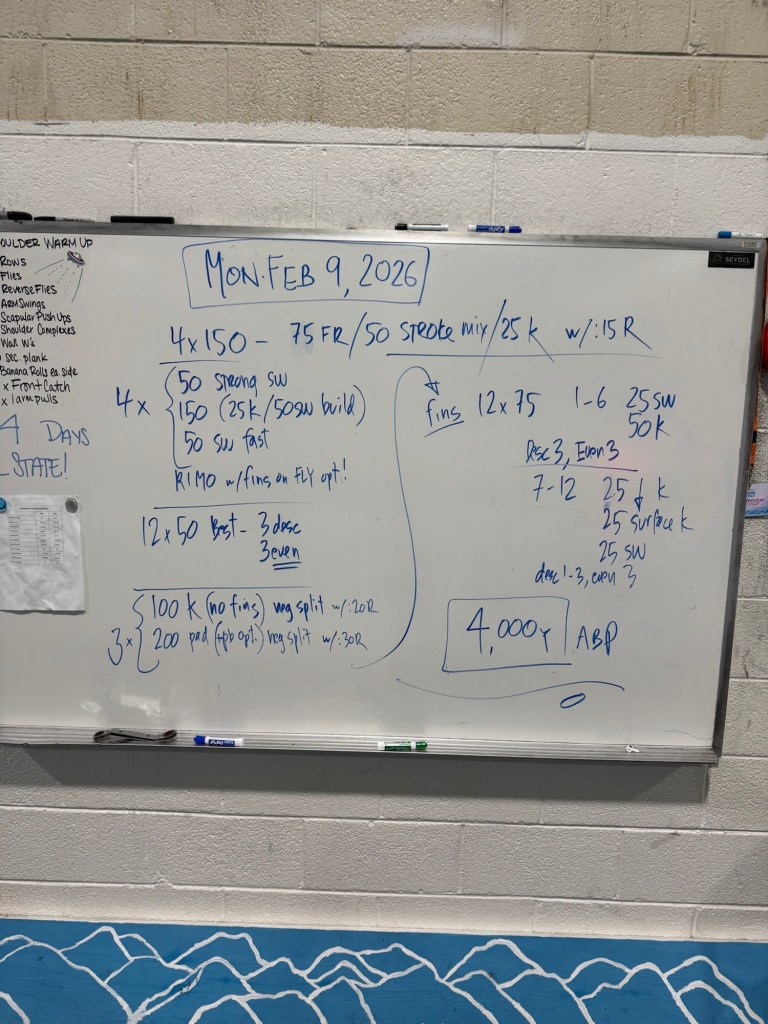 OULDER WARM UP
ROWS
Flies
Reverse Flies
ARM Swings
Scapular Push Ups
Shoulder Complexes
Wall W's
sec. plank
Banana Rolls ea. side
x Front Catch
x 1 arm pulls
4 DAYS
STATE!
SEYDEL
MON. FEB 9, 2026
4x150 - 75 FR/50 STROKE MIX/25 K w/:15 R
4x
50 strong sw
150 (25k/50sw build)
50 sw fast
RIMO w/fins on FLY opt!
12x50 Best - 3 desc
3 even
3x
100 k (no fins) neg split w/:20R
200 pad (+pb opt.) neg split w/:30R
fins 12x75 1-6 25 sw
50 k
Desc 3, Even 3
7-12 25 ↓ k
25 surface k
25 sw
desc 1-3, even 3
4,000y ABP